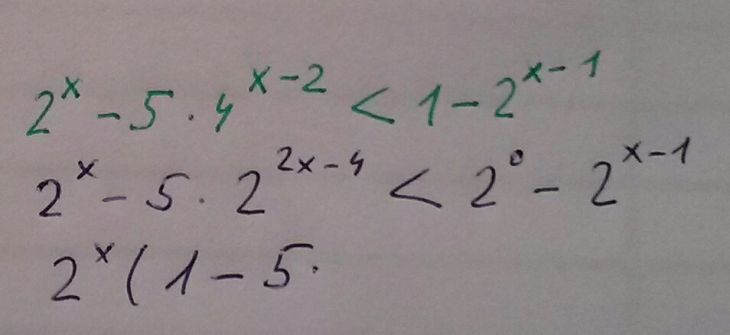 2^x - 5 · 4^{x-2} < 1 - 2^{x-1}
2^x - 5 · 2^{2x-4} < 2^0 - 2^{x-1}
2^x (1 - 5 ·